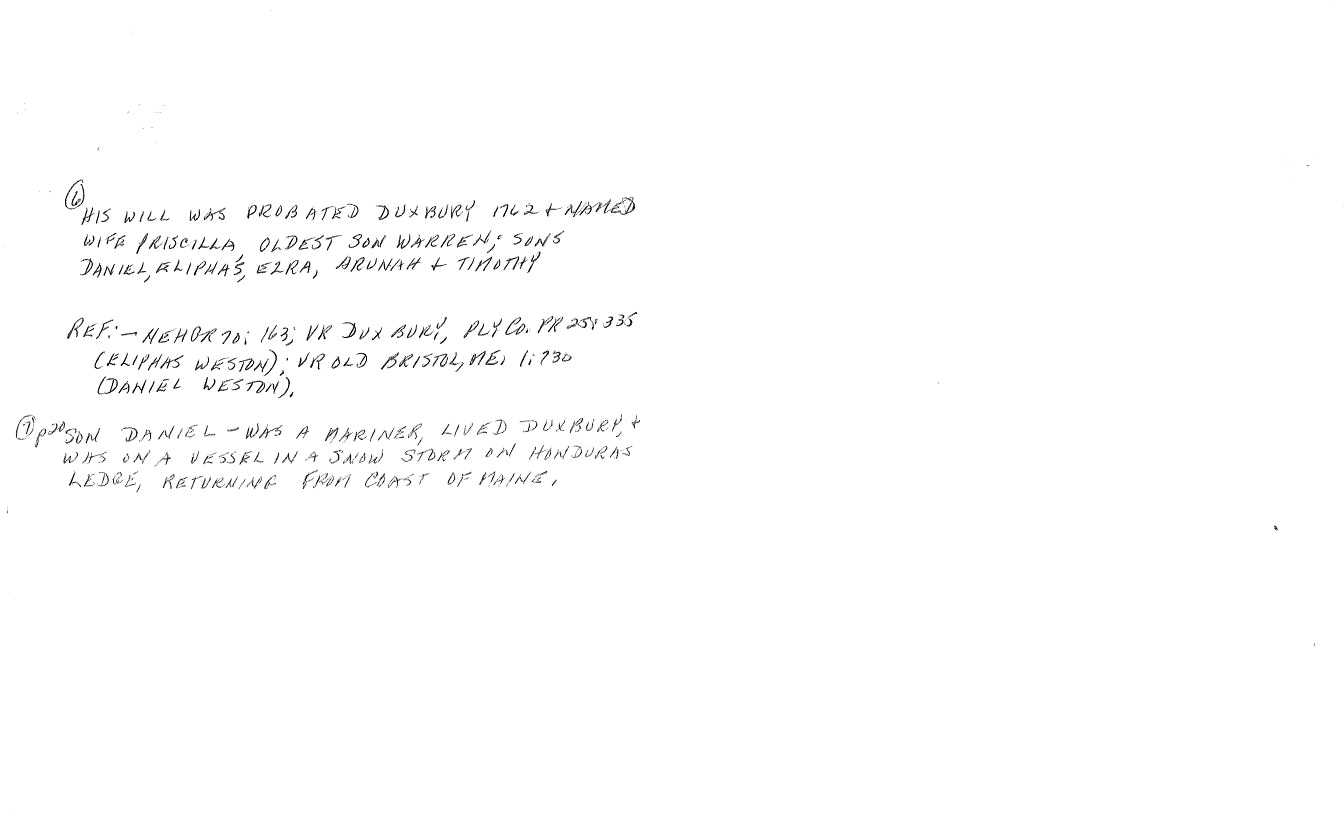 ⑥
HIS WILL WAS PROBATED DUXBURY 1762 + NAMED
WIFE PRISCILLA, OLDEST SON WARREN; SONS
DANIEL, ELIPHAS, EZRA, ARUNAH + TIMOTHY
REF:- NEHGR 70: 163; VR DUXBURY, PLY CO. PR 25: 335
(ELIPHAS WESTON); VR OLD BRISTOL, ME. 1: 730
(DANIEL WESTON).
⑦ p20 SON DANIEL - WAS A MARINER, LIVED DUXBURY, +
WAS ON A VESSEL IN A SNOW STORM ON HONDURAS
LEDGE, RETURNING FROM COAST OF MAINE.